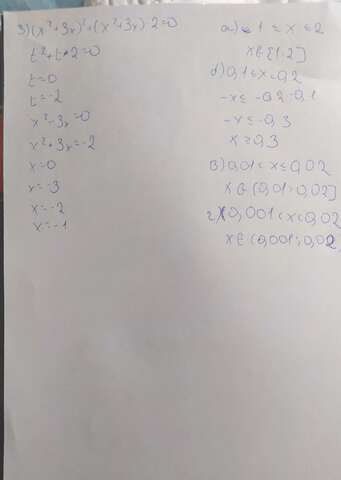 3) (x²+3x)²+(x²+3x)·2=0
t²+t·2=0
t=0
t=-2
x²-3x=0
x²+3x=-2
x=0
x=-3
x=-2
x=-1
а) 1 ≤ x ≤ 2
x∈[1;2]
б) 0,1≤x≤0,2
-x≤ -0,2-0,1
-x≤ -0,3
x≥0,3
в) 0,01<x≤0,02
x∈(0,01;0,02]
г) 0,001<x<0,02
x∈(0,001;0,02